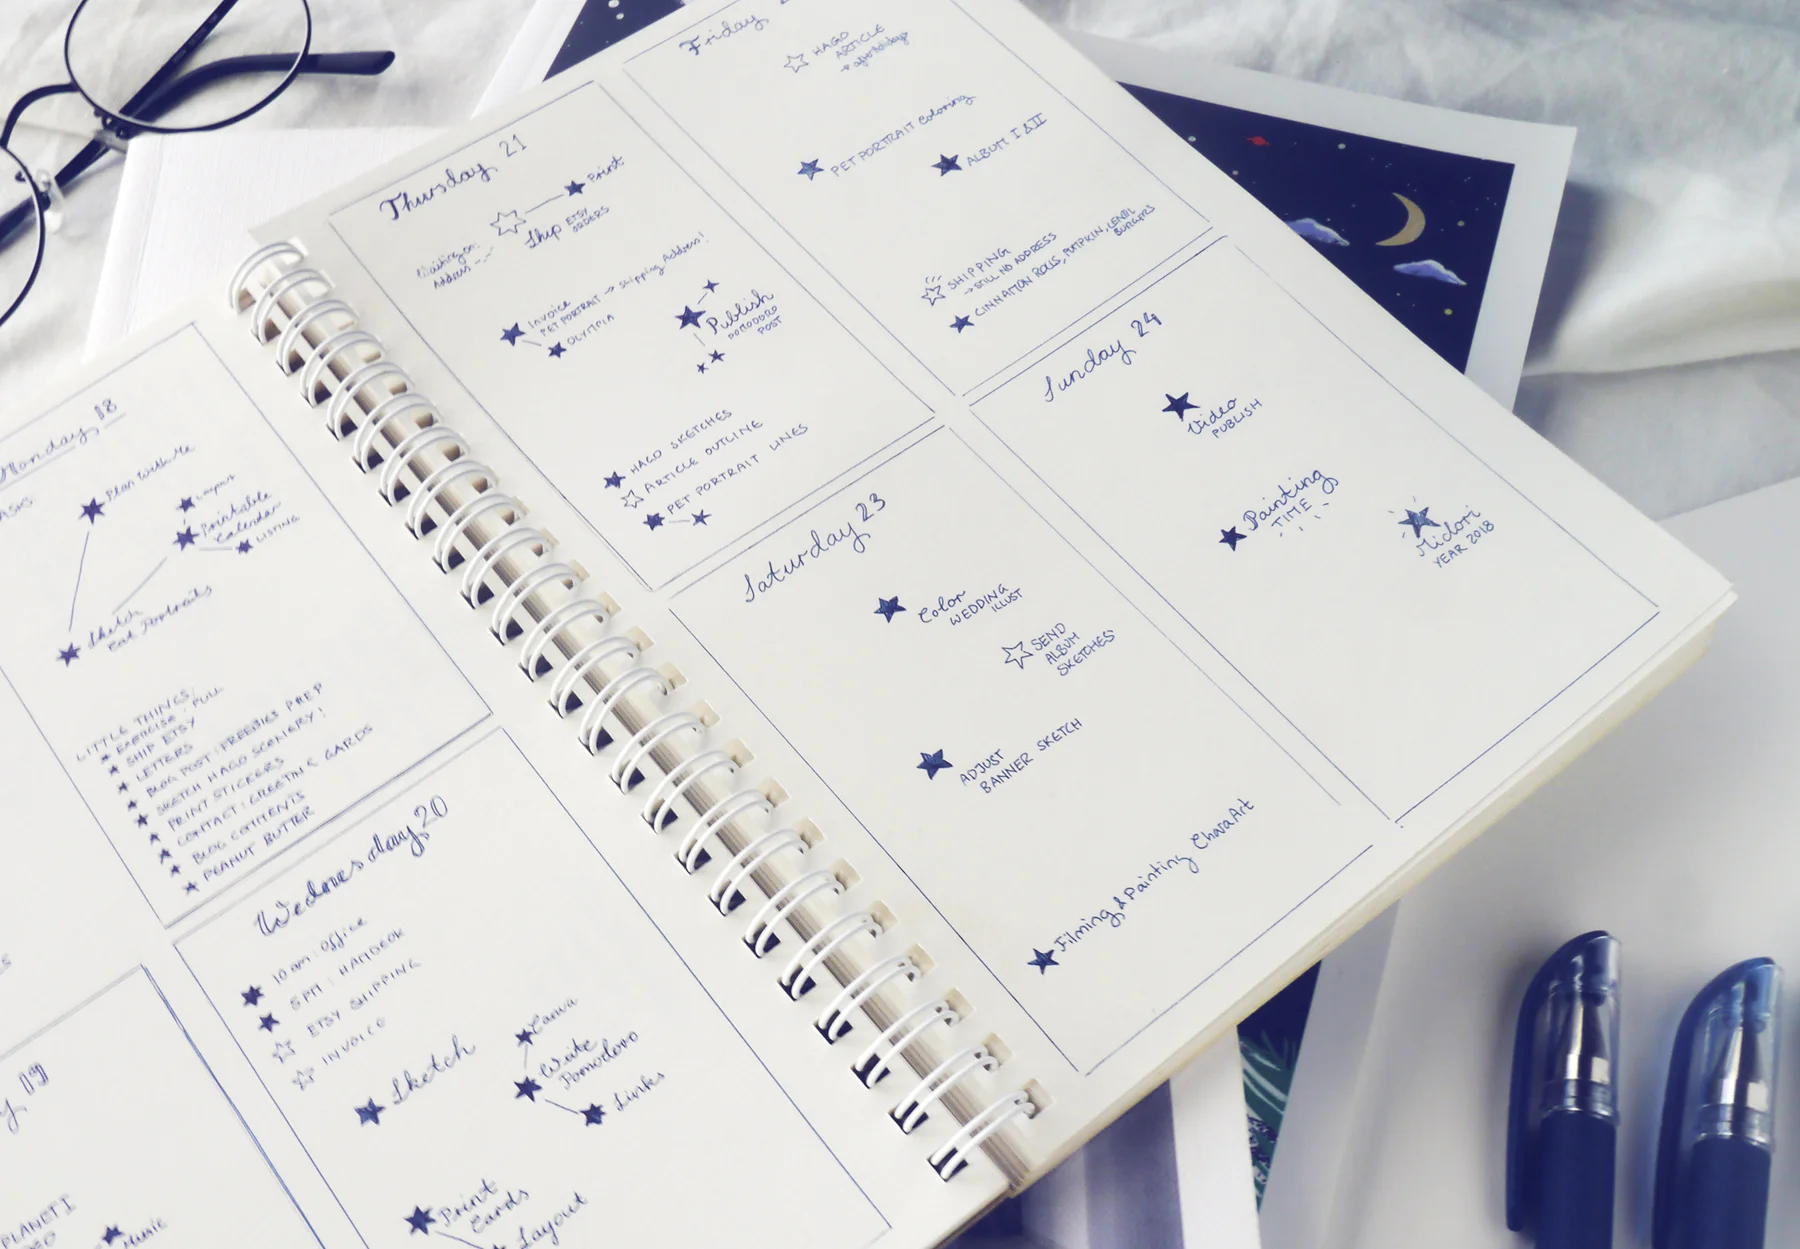 Monday 18
Plan with Me
Printable
Calendar
LISTING
Sketch
Cat Portraits
LITTLE THINGS:
EXERCISE: FULL
SHIP ETSY
LETTERS
BLOG POST: FREEBIES PREP
SKETCH HAGO SCENERY!
PRINT STICKERS
CONTACT: GREETING CARDS
BLOG COMMENTS
PEANUT BUTTER
19
PLANET I
Music
Wednesday 20
10 am: Office
5PM: HANDEOK
ETSY SHIPPING
INVOICE
Sketch
Canva
Write
Pomodoro
Links
Print
Cards
Layout
Thursday 21
Print
Ship ETSY
ORDERS
Waiting on
Address
Invoice
PET PORTRAIT → Shipping Address!
OLYMPIA
Publish
POMODORO
POST
HAGO SKETCHES
ARTICLE OUTLINE
PET PORTRAIT LINES
Friday
HAGO
ARTICLE
PET PORTRAIT Coloring
ALBUM I & II
SHIPPING
→ STILL NO ADDRESS
CINNAMON ROLLS, PUMPKIN, LENTIL
BURGERS
Saturday 23
Color
WEDDING
ILLUST
SEND
ALBUM
SKETCHES
ADJUST
BANNER SKETCH
Filming & Painting CharaArt
Sunday 24
Video
PUBLISH
Painting
TIME
Midori
YEAR 2018